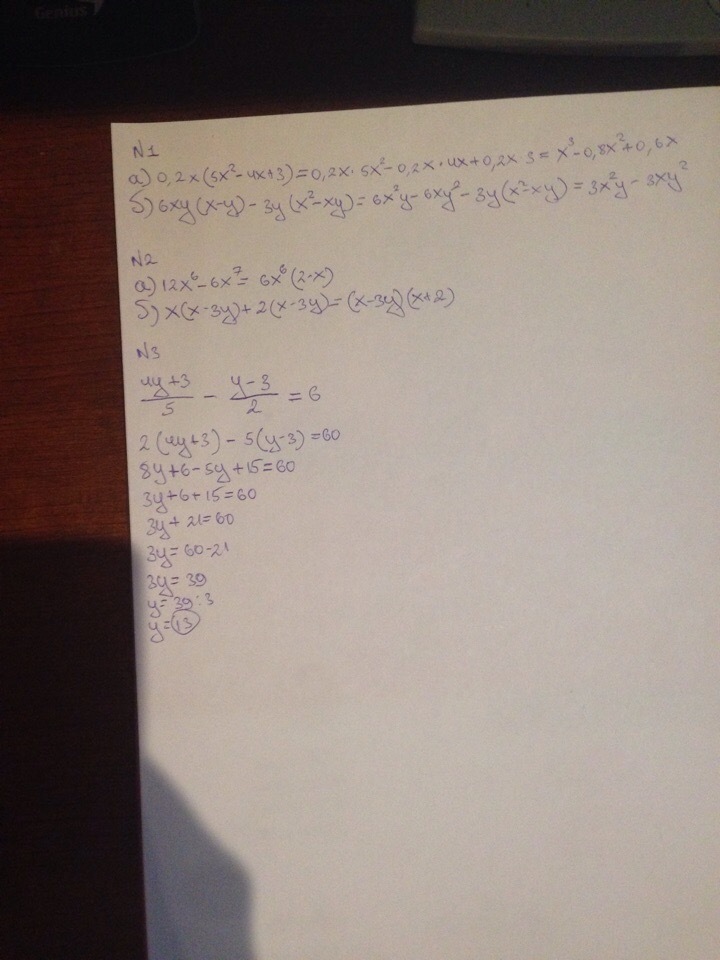 Genius
N1
а) 0,2x(5x²-4x+3)=0,2x·5x²-0,2x·4x+0,2x·3=x³-0,8x²+0,6x
б) 6xy(x-y)-3y(x²-xy)=6x²y-6xy²-3y(x²-xy)=3x²y-3xy²
N2
а) 12x⁶-6x⁷=6x⁶(2-x)
б) x(x-3y)+2(x-3y)=(x-3y)(x+2)
N3
(4y+3)/5 - (y-3)/2 = 6
2(4y+3)-5(y-3)=60
8y+6-5y+15=60
3y+6+15=60
3y+21=60
3y=60-21
3y=39
y=39:3
y=13